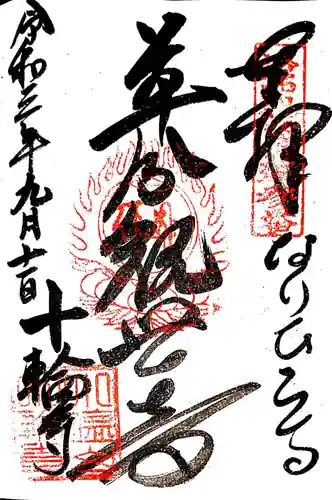 奉拝
なりひら寺
草分観世音
令和三年九月十一日
十輪寺